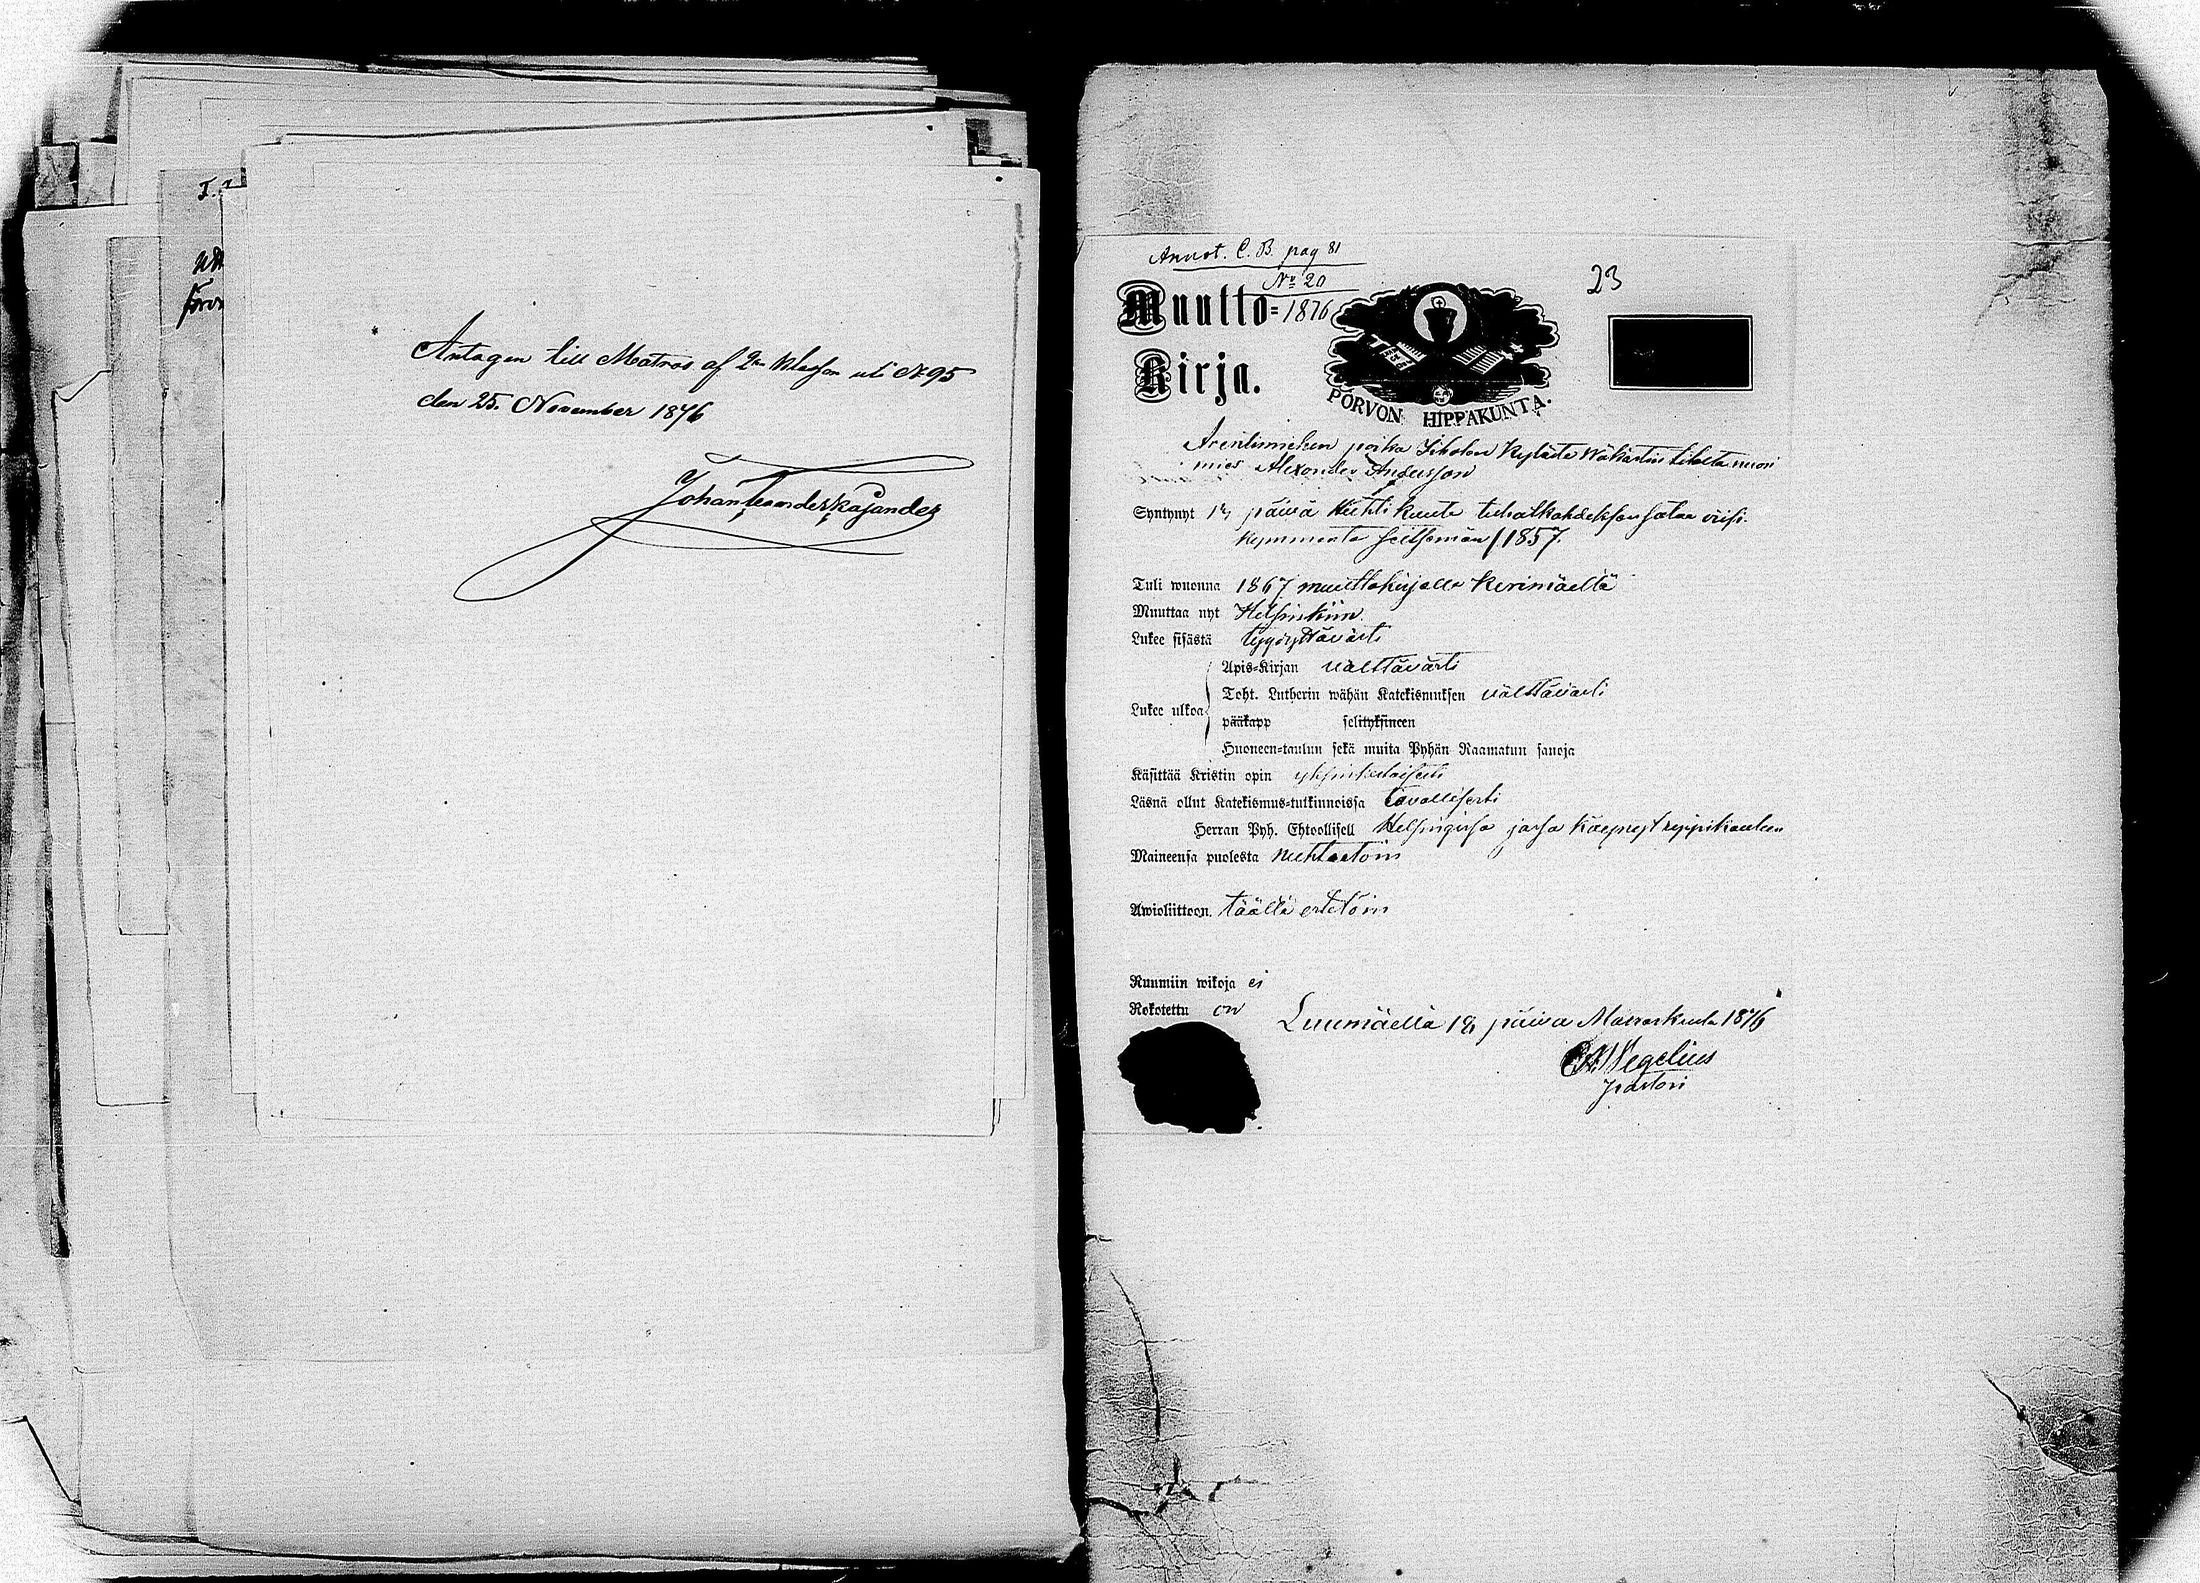 Antagen till Matros af 2a Klassen uti No 95
den 25. November 1876
Johan Leander Kajander
Annot. C. B. pag 81
No 20
1876
23
Muutto=
Kirja.
PORVON HIPPAKUNTA.
poika Kylästä nuori
mies Alexander Andersson
Syntynyt päivä Huhtikuuta tuhatkahdeksansataa viisi-
kymmentä seitsemän /1857.
Tuli wuonna 1867 muuttokirjalla Kerimäeltä
Muuttaa nyt Helsinkiin.
Lukee sisästä tyydyttävästi
Lukee ulkoa
Apis-Kirjan välttävästi
Toht. Lutherin wähän Katekismuksen välttävästi
pääkapp selityksineen
Huoneen-taulun sekä muita Pyhän Raamatun sanoja
Käsittää Kristin opin yksinkertaisesti
Läsnä ollut Katekismus-tutkinnoissa tavallisesti
Herran Pyh. Ehtoollisell Helsingissä jossa käynyt rippikoulun
Maineensa puolesta nuhteetoin
Awioliittoon. täällä esteetöin
Ruumiin wikoja ei
Rokotettu on
Luumäellä päivä Marraskuuta 1876
Wegelius
pastori